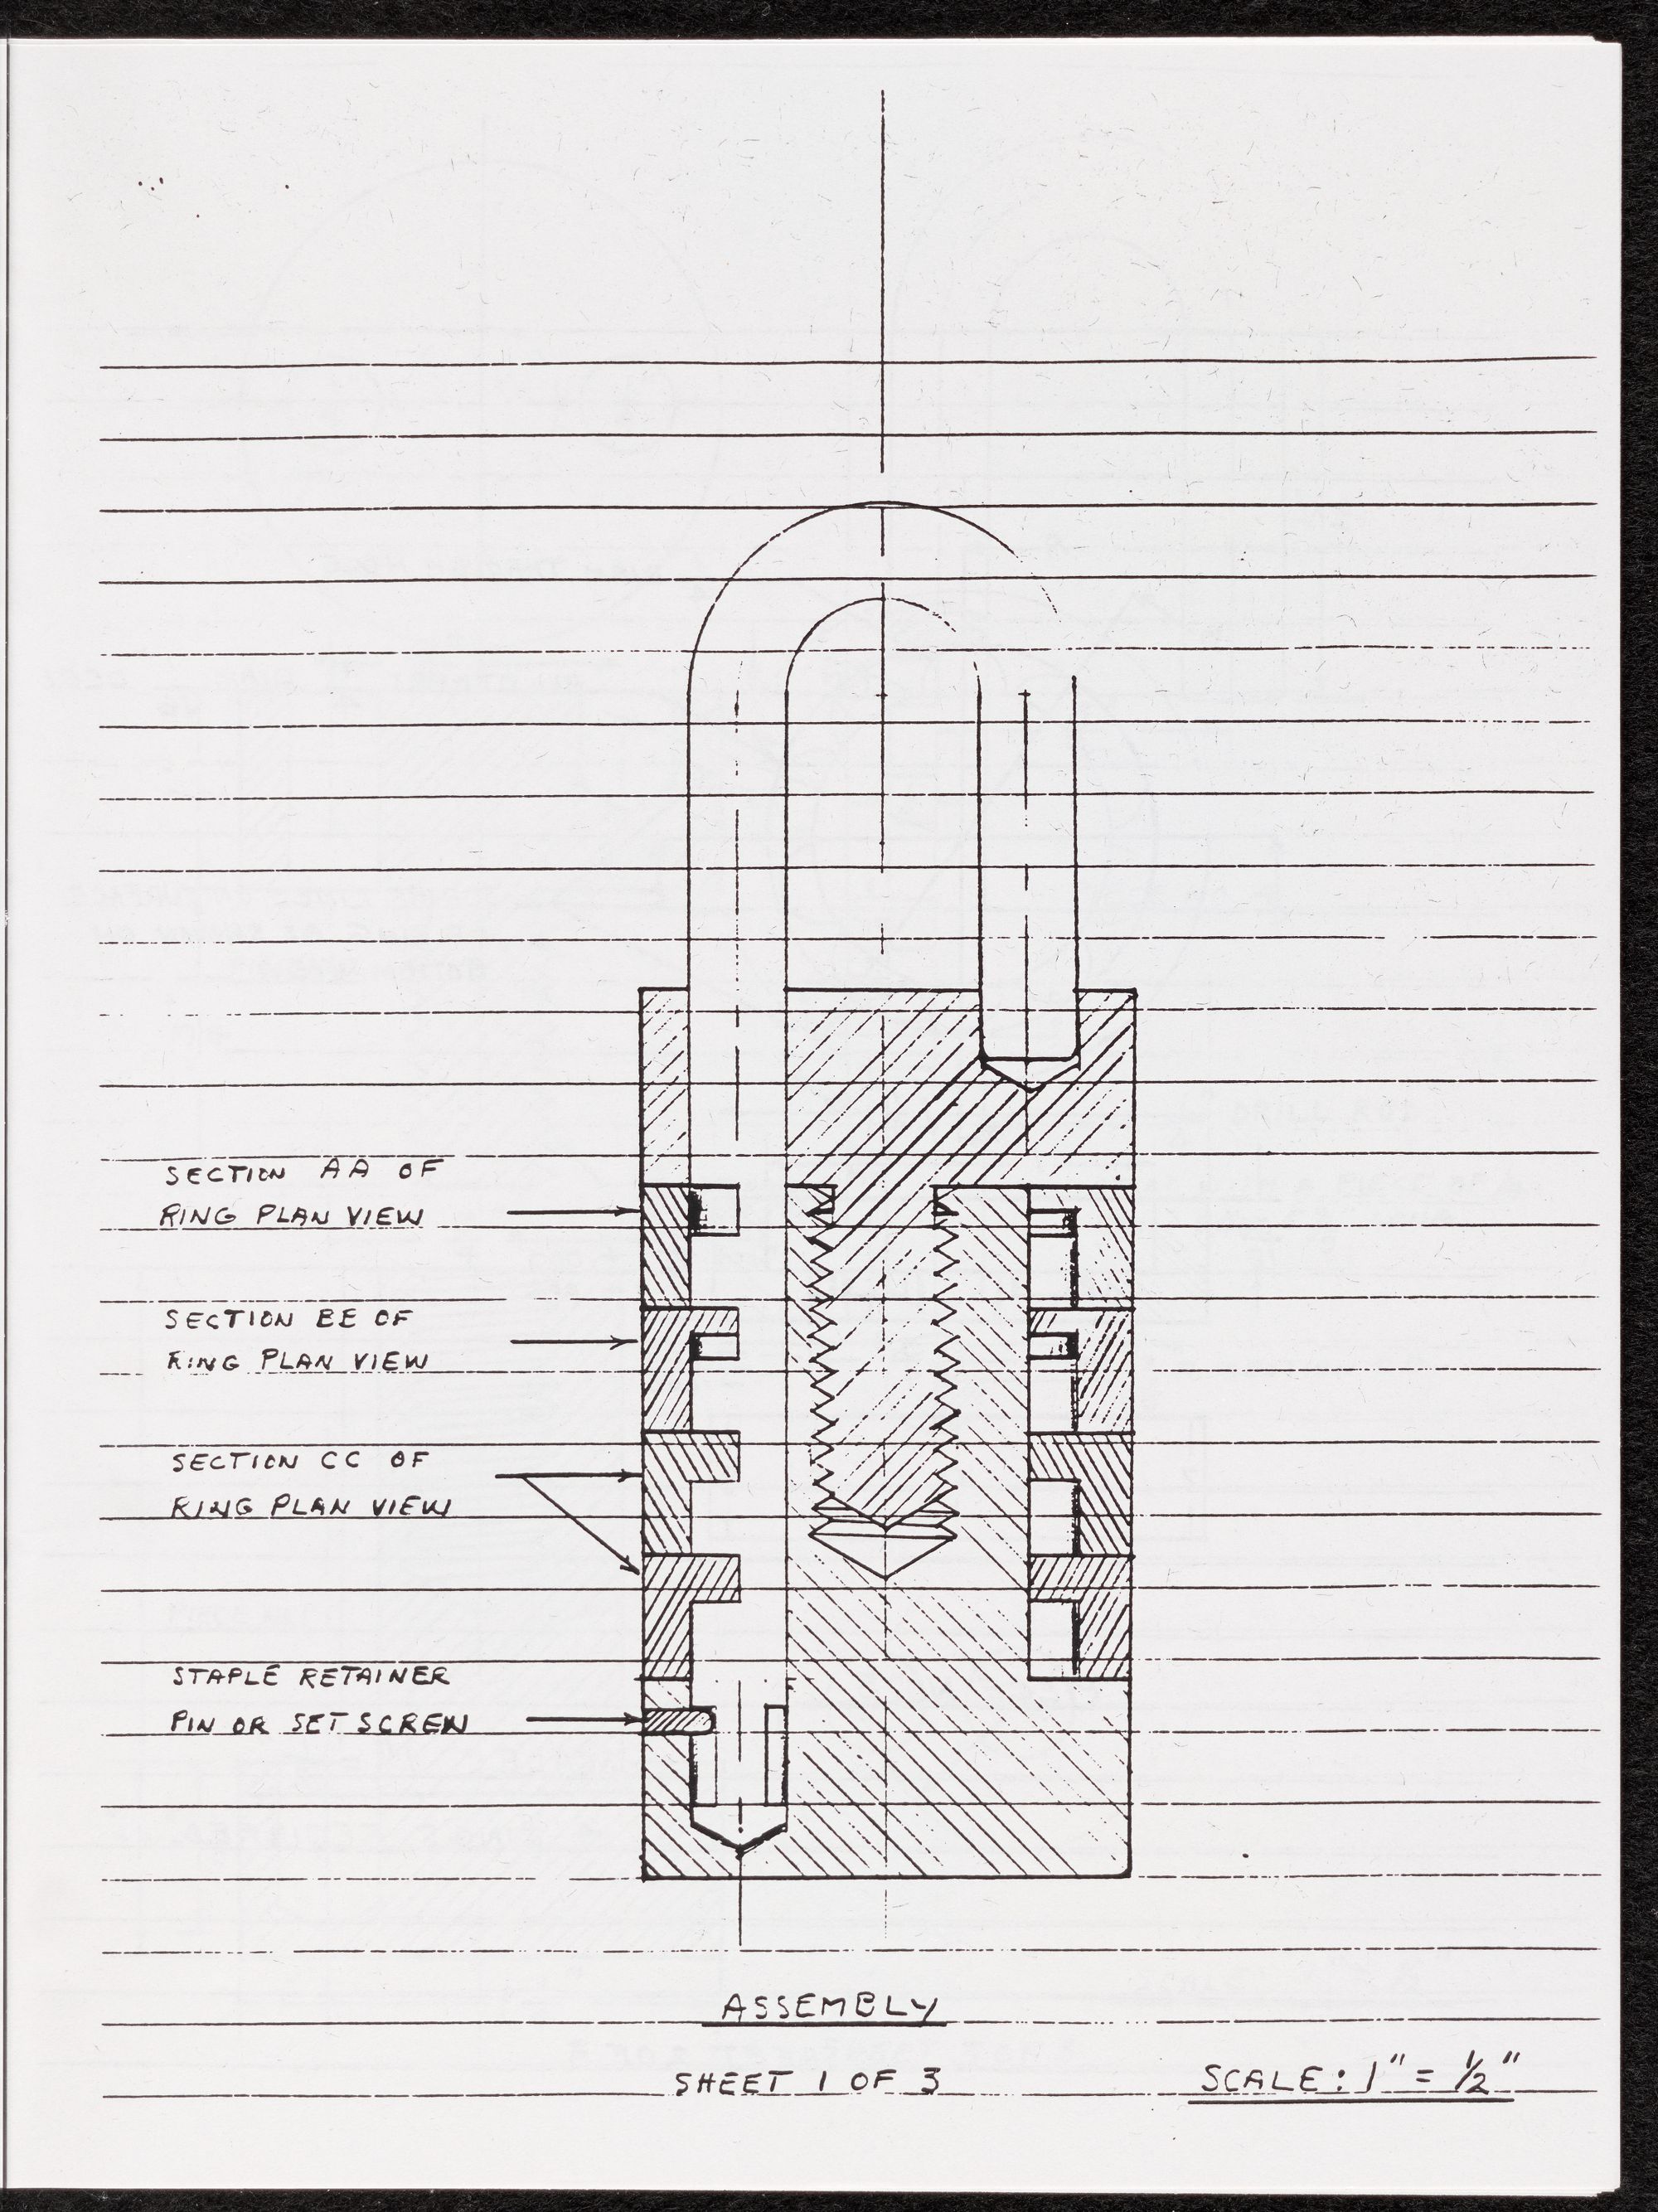 SECTION AA OF
RING PLAN VIEW
SECTION BE OF
RING PLAN VIEW
SECTION CC OF
RING PLAN VIEW
STAPLE RETAINER
PIN OR SET SCREW
ASSEMBLY
SHEET 1 OF 3
SCALE: 1" = 1/2"